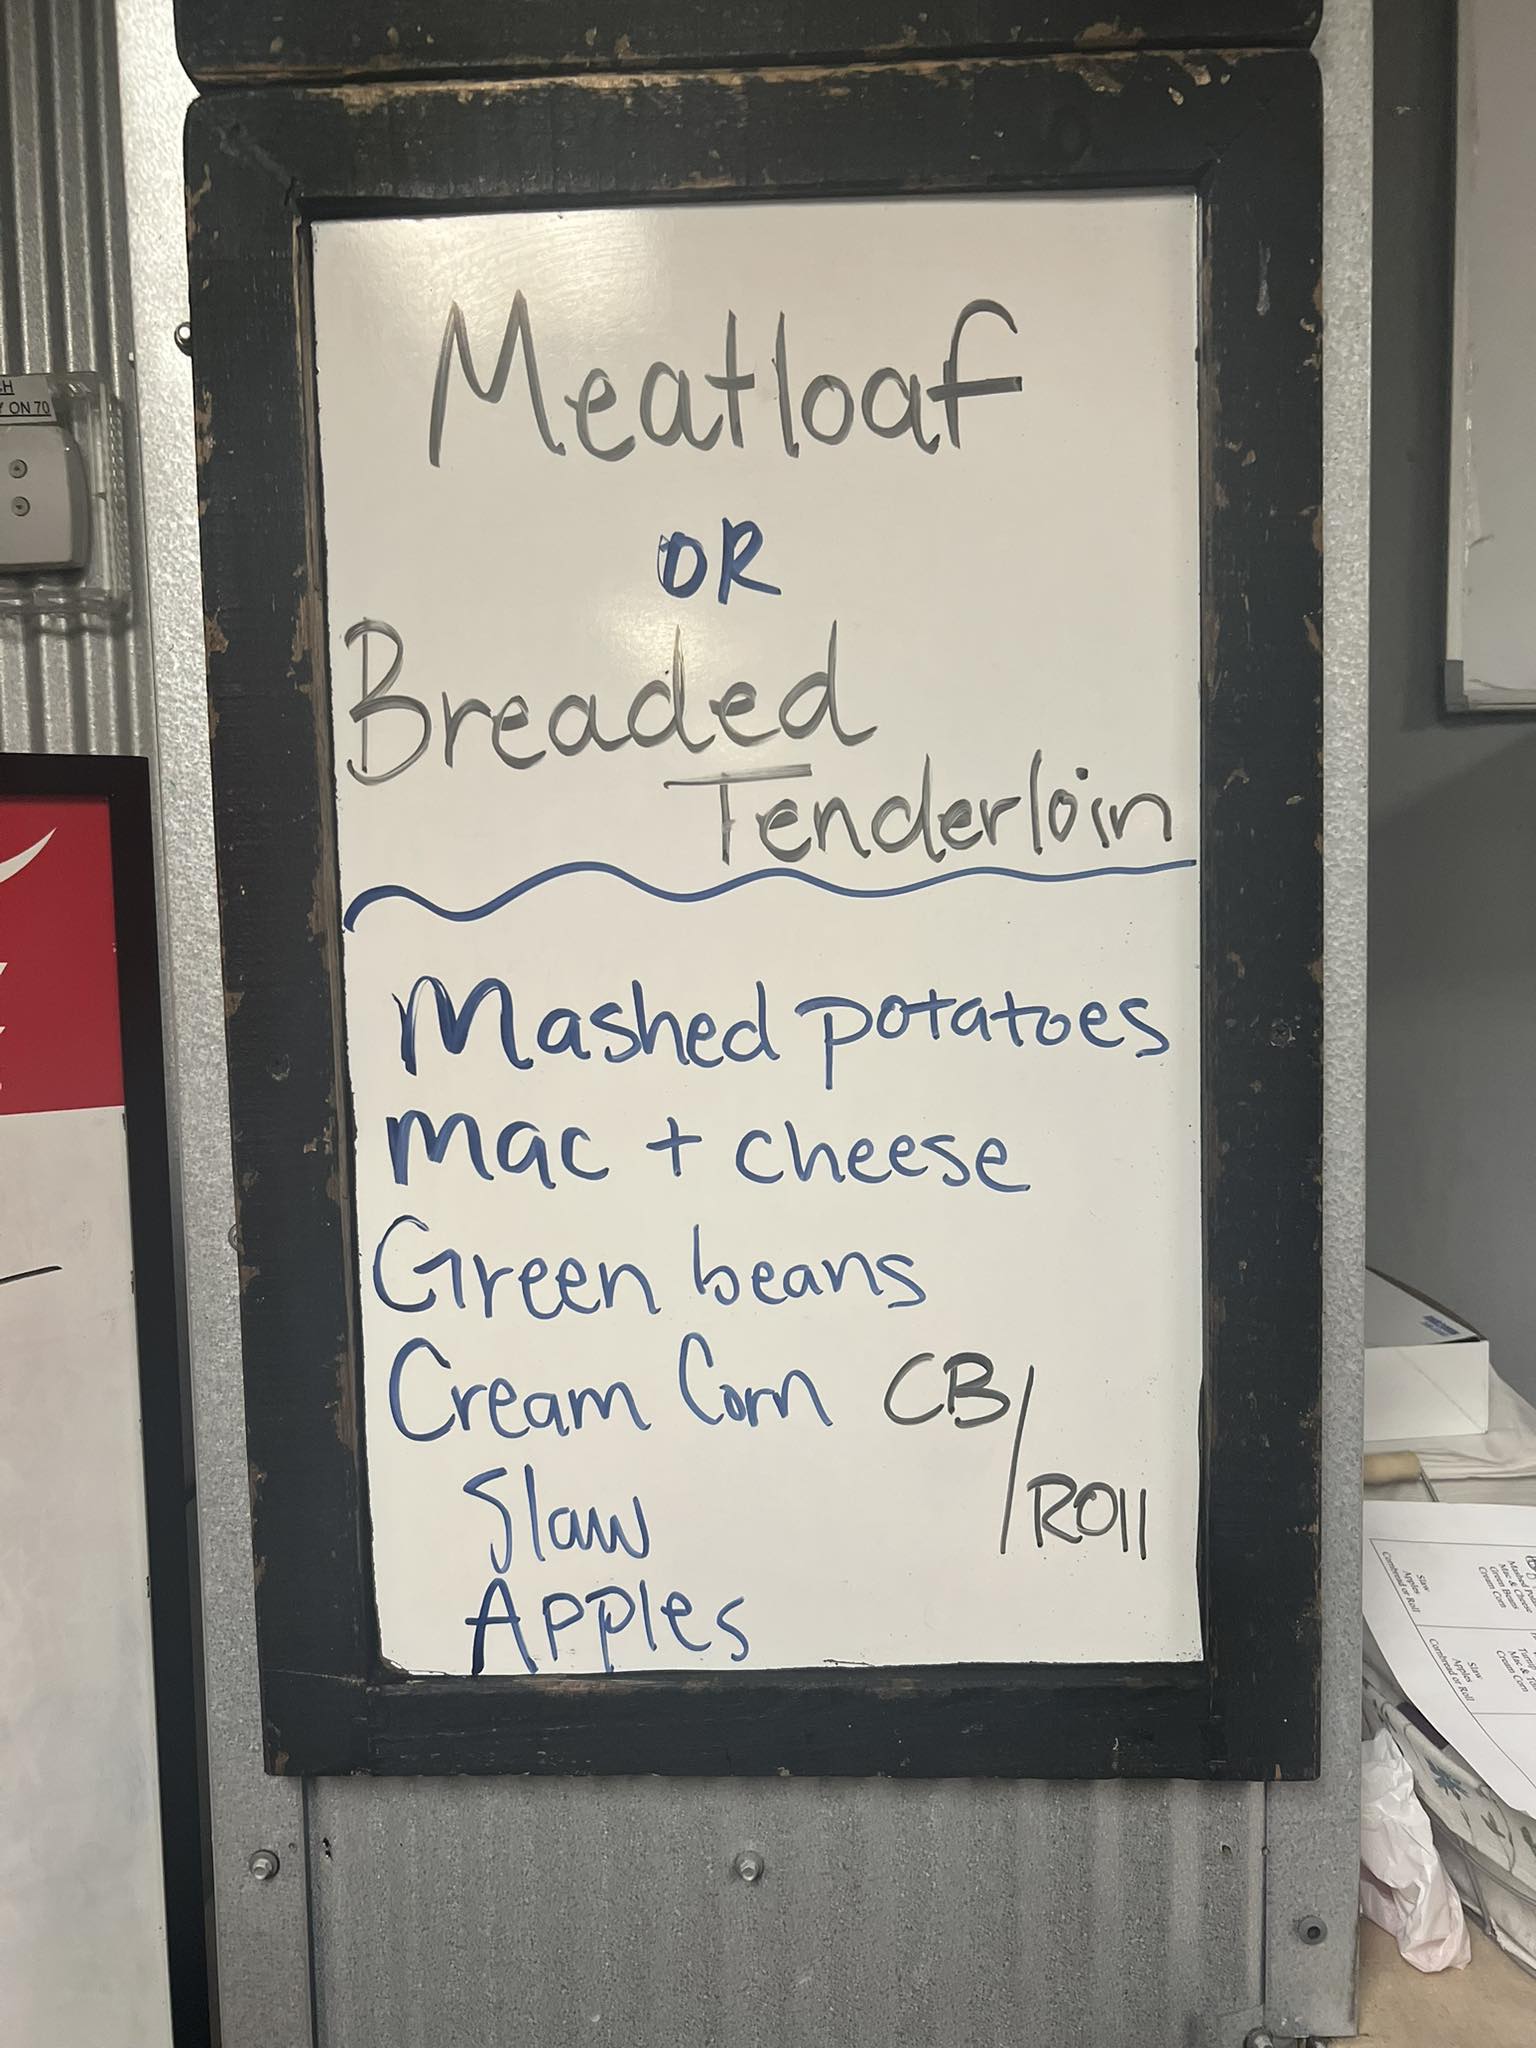 Meatloaf
OR
Breaded
Tenderloin
Mashed potatoes
Mac + cheese
Green beans
Cream Corn CB/
Roll
Slaw
Apples
ON 70
Slaw
Apples
Cornbread or Roll
Mac & Cheese
Green Beans
Cream Corn
Slaw
Apples
Cornbread or Roll
Cream Corn